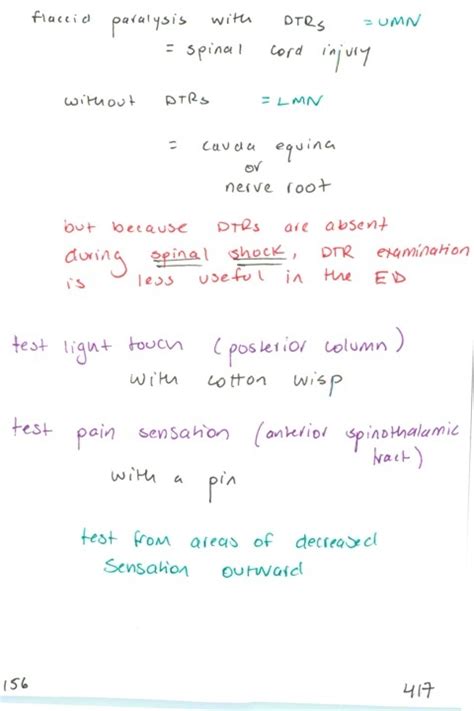 flaccid paralysis with DTRs = UMN
= spinal cord injury
without DTRs = LMN
= cauda equina
or
nerve root
but because DTRs are absent
during spinal shock, DTR examination
is less useful in the ED
test light touch (posterior column)
with cotton wisp
test pain sensation (anterior spinothalamic
tract)
with a pin
test from areas of decreased
sensation outward
156
417